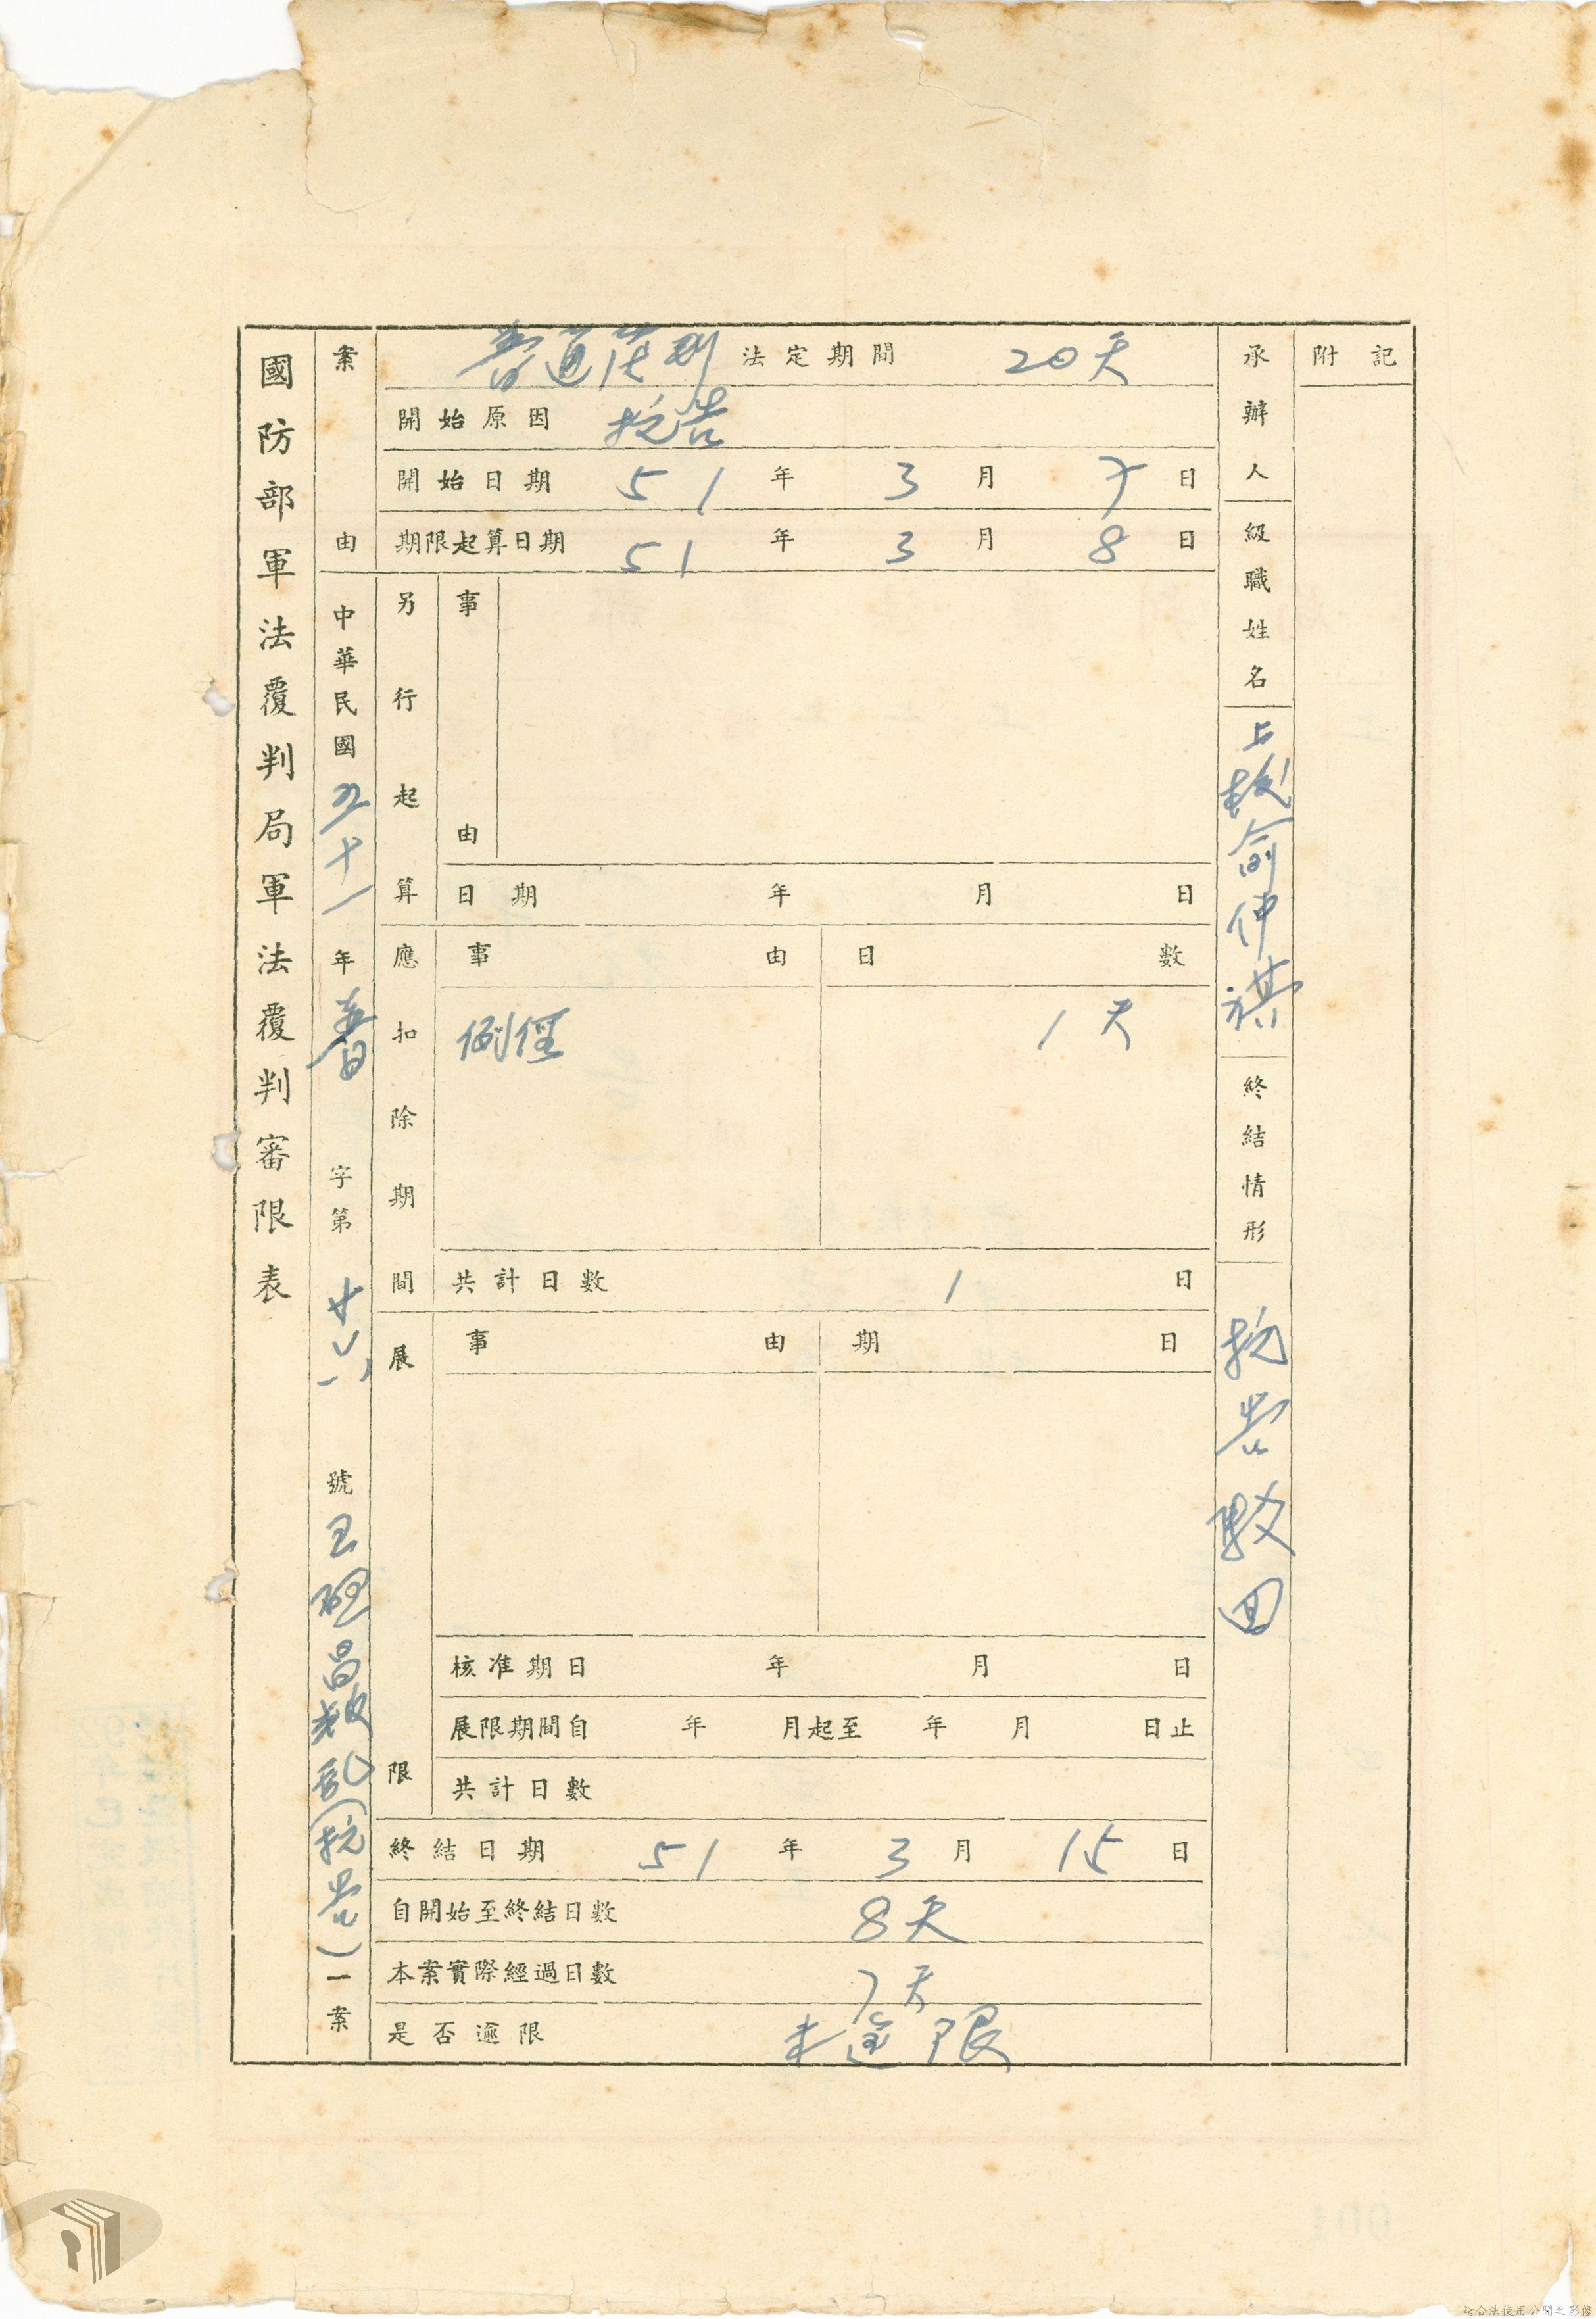 國防部軍法覆判局軍法覆判審限表
案由
中華民國五十一年普字第廿六號王硯昌叛亂(抗告)一案
普通 法定期間 20天
開始原因 抗告
開始日期 51年3月7日
期限起算日期 51年3月8日
另行起算
事由
日期 年 月 日
應扣除期間
事由 日數
例 1天
共計日數 1日
展限
事由 期日
核准期日 年 月 日
展限期間自 年 月起至 年 月 日止
共計日數
終結日期 51年3月15日
自開始至終結日數 8天
本案實際經過日數 7天
是否逾限 未逾限
承辦人級職姓名 上校俞仲祺
終結情形 抗告駁回
附記
001
請合法使用公開之影像